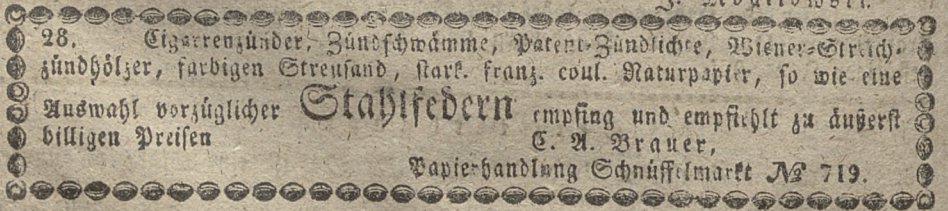 28. Cigarrenzünder, Zündschwämme, Patent-Zündlichte, Wiener-Streich-
zündhölzer, farbigen Streusand, stark. franz. coul. Naturpapier, so wie eine
Auswahl vorzüglicher Stahlfedern empfing und empfiehlt zu äußerst
billigen Preisen C. A. Brauer,
Papierhandlung Schnüffelmarkt № 719.